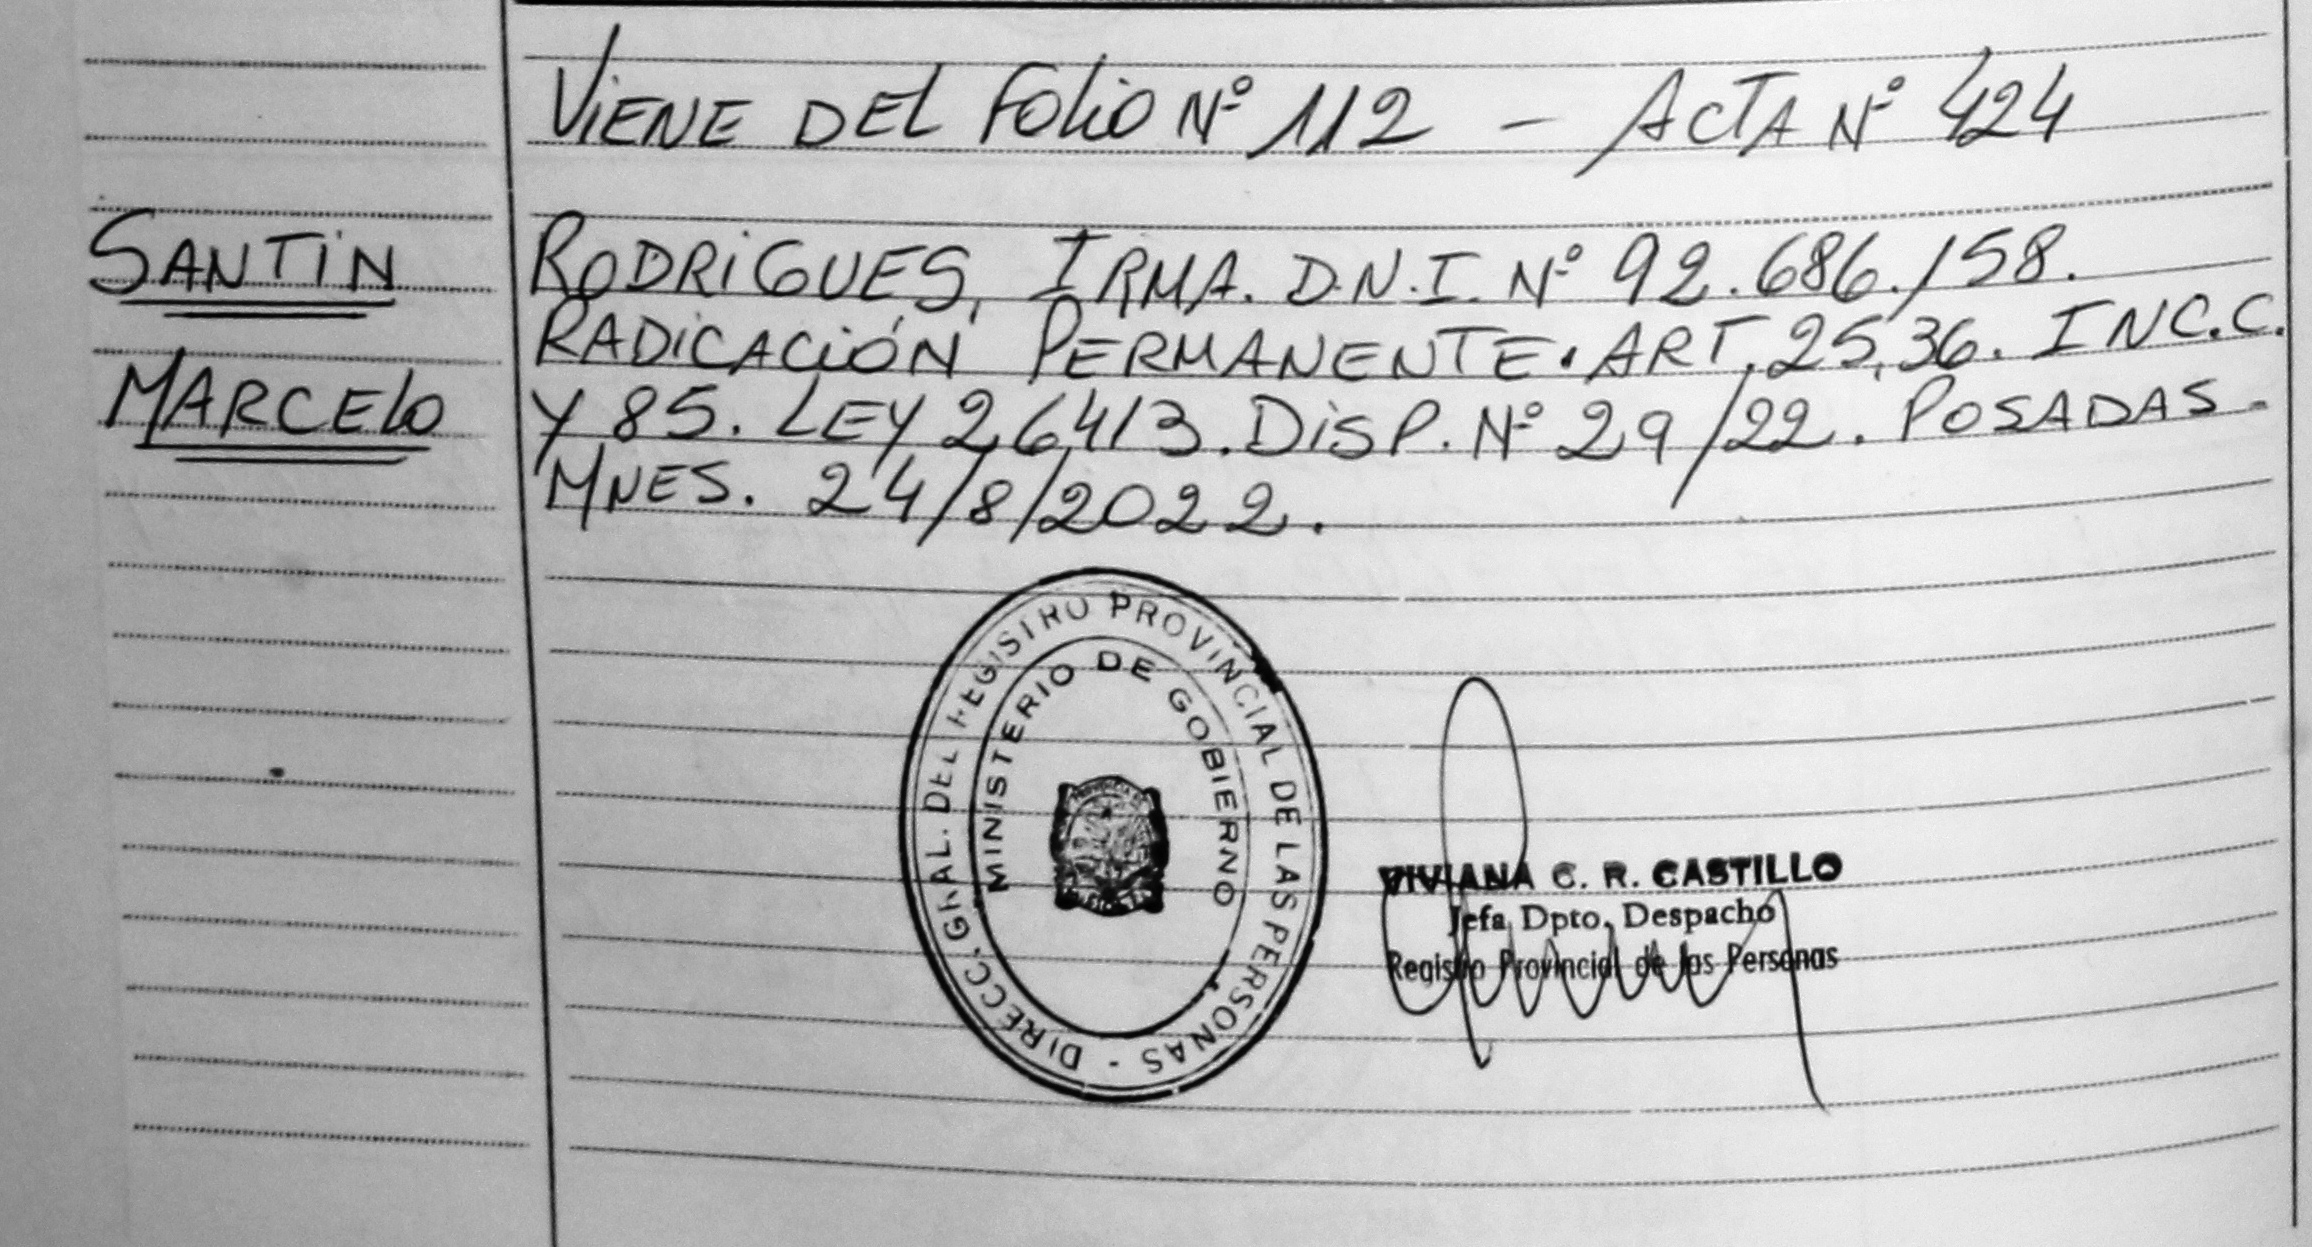 ViENE DEL Folio Nº 112 - ACTA Nº 424
SANTiN
MARCElo
RODRiGUES, IRMA. D.N.I. Nº 92.686.158.
RADiCACiÓN PERMANENTE. ART. 25, 36. INC.C.
Y 85. LEY 26413. DiSP. Nº 29/22. POSADAS-
MNES. 24/8/2022.
DIRECC. GRAL. DEL REGISTRO PROVINCIAL DE LAS PERSONAS -
MINISTERIO DE GOBIERNO
VIVIANA C. R. CASTILLO
Jefa Dpto. Despacho
Registro Provincial de las Personas